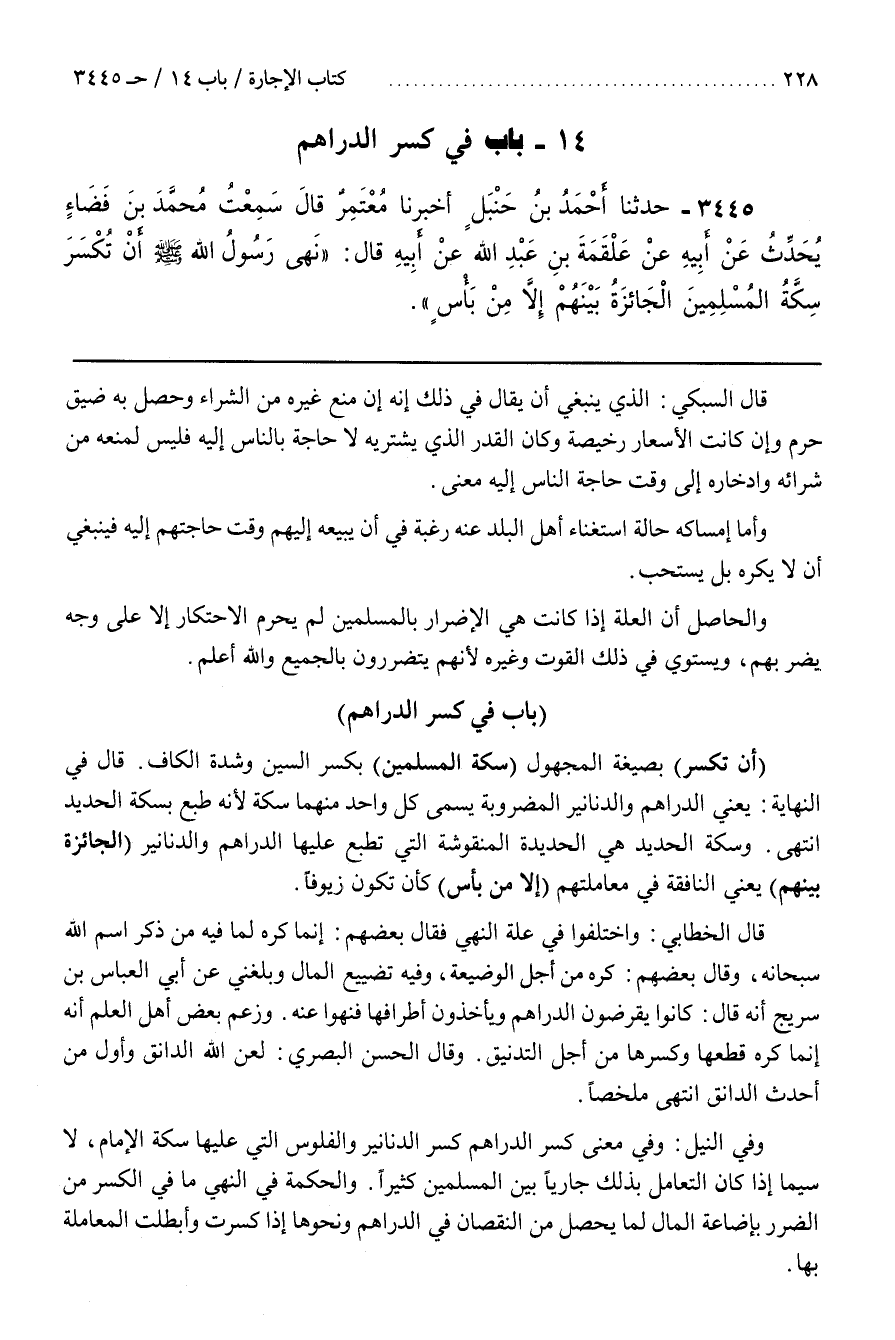 ٢٢٨ ............................................. كتاب الإجارة / باب ١٤ / حـ ٣٤٤٥
١٤ - باب في كسر الدراهم
٣٤٤٥ - حدثنا أَحْمَدُ بنُ حَنْبَلٍ أخبرنا مُعْتَمِرٌ قالَ سَمِعْتُ مُحمَّدَ بنَ فَضَاءٍ
يُحَدِّثُ عَنْ أَبِيهِ عنْ عَلْقَمَةَ بنِ عَبْدِ الله عنْ أَبِيهِ قال: «نَهى رَسُولُ الله ﷺ أَنْ تُكْسَرَ
سِكَّةُ المُسْلِمِينَ الْجَائزَةُ بَيْنَهُمْ إِلَّا مِنْ بَأْسٍ».
قال السبكي: الذي ينبغي أن يقال في ذلك إنه إن منع غيره من الشراء وحصل به ضيق
حرم وإن كانت الأسعار رخيصة وكان القدر الذي يشتريه لا حاجة بالناس إليه فليس لمنعه من
شرائه وادخاره إلى وقت حاجة الناس إليه معنى.
وأما إمساكه حالة استغناء أهل البلد عنه رغبة في أن يبيعه إليهم وقت حاجتهم إليه فينبغي
أن لا يكره بل يستحب.
والحاصل أن العلة إذا كانت هي الإضرار بالمسلمين لم يحرم الاحتكار إلا على وجه
يضر بهم، ويستوي في ذلك القوت وغيره لأنهم يتضررون بالجميع والله أعلم.
(باب في كسر الدراهم)
(أن تكسر) بصيغة المجهول (سكة المسلمين) بكسر السين وشدة الكاف. قال في
النهاية: يعني الدراهم والدنانير المضروبة يسمى كل واحد منهما سكة لأنه طبع بسكة الحديد
انتهى. وسكة الحديد هي الحديدة المنقوشة التي تطبع عليها الدراهم والدنانير (الجائزة
بينهم) يعني النافقة في معاملتهم (إلا من بأس) كأن تكون زيوفاً.
قال الخطابي: واختلفوا في علة النهي فقال بعضهم: إنما كره لما فيه من ذكر اسم الله
سبحانه، وقال بعضهم: كره من أجل الوضيعة، وفيه تضييع المال وبلغني عن أبي العباس بن
سريج أنه قال: كانوا يقرضون الدراهم ويأخذون أطرافها فنهوا عنه. وزعم بعض أهل العلم أنه
إنما كره قطعها وكسرها من أجل التدنيق. وقال الحسن البصري: لعن الله الدانق وأول من
أحدث الدانق انتهى ملخصاً.
وفي النيل: وفي معنى كسر الدراهم كسر الدنانير والفلوس التي عليها سكة الإمام، لا
سيما إذا كان التعامل بذلك جارياً بين المسلمين كثيراً. والحكمة في النهي ما في الكسر من
الضرر بإضاعة المال لما يحصل من النقصان في الدراهم ونحوها إذا كسرت وأبطلت المعاملة
بها.